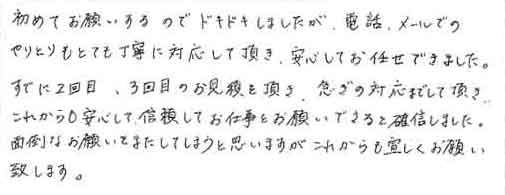 初めてお願いするのでドキドキしましたが、電話、メールでの
やりとりもとても丁寧に対応して頂き、安心してお任せできました。
すでに2回目、3回目のお見積を頂き、急ぎの対応までして頂き
これからも安心して、信頼してお仕事をお願いできると確信しました。
面倒なお願いをまたしてしまうと思いますがこれからも宜しくお願い
致します。